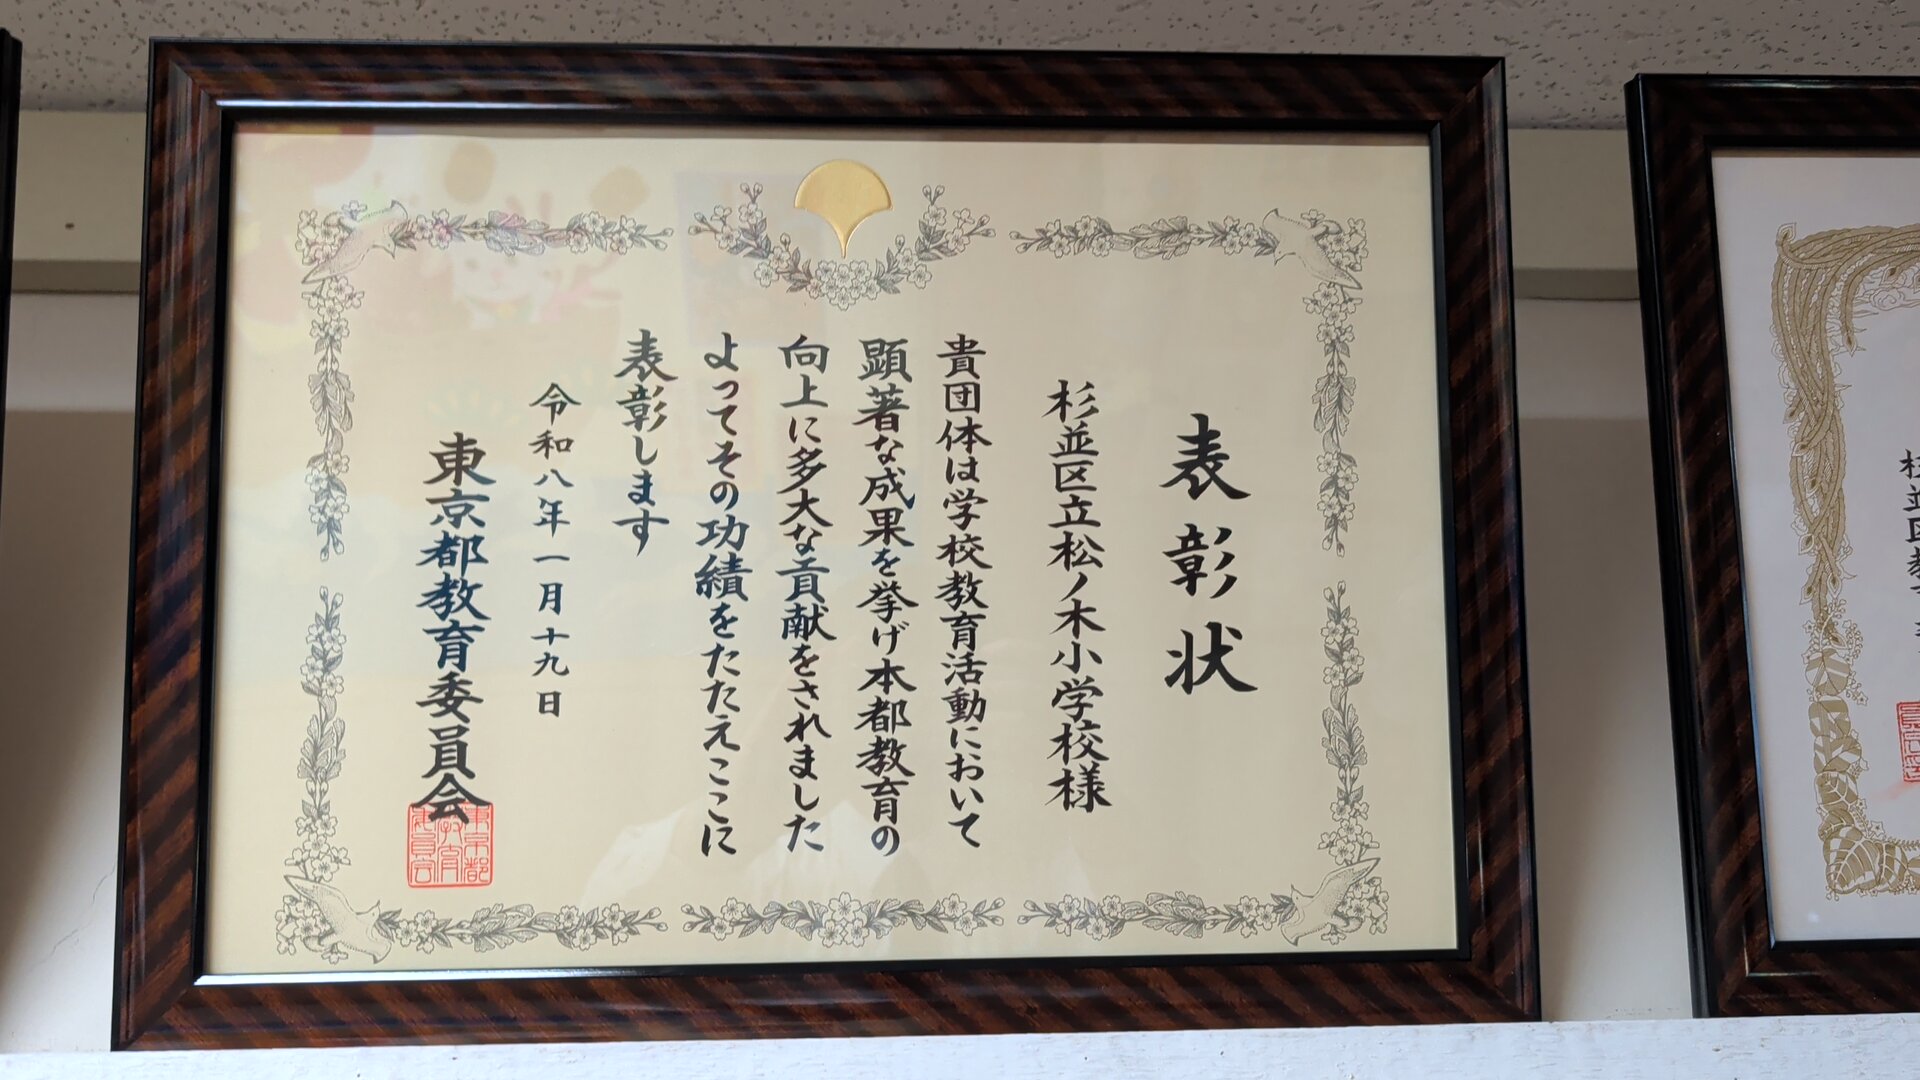 表彰状
杉並区立松ノ木小学校様
貴団体は学校教育活動において
顕著な成果を挙げ本都教育の
向上に多大な貢献をされました
よってその功績をたたえここに
表彰します
令和八年一月十九日
東京都教育委員会
東京都
教育
委員会